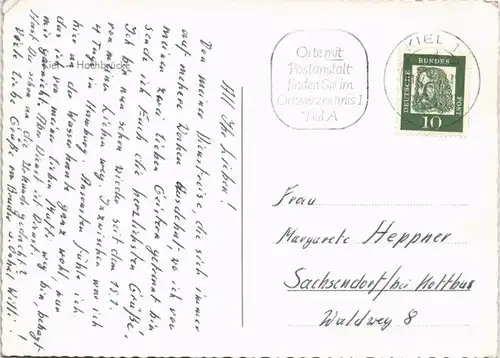 All Ihr Lieben!
Von meiner Dienstreise, die sich immer
auf mehrere Wochen, wo ich von
meinen zwei lieben Geistern getrennt bin
sende ich Euch die herzlichsten Grüße.
Ich bin nun schon wieder seit dem
von meinen Lieben weg. Inzwischen war ich
4 Tage in Hamburg. Ansonsten fühle ich
hier an der Wasserkante ganz wohl, nur
das ich von meiner lieben Mutti weg bin, behagt
mir garnicht. Aber Dienst ist Dienst.
Habt Ihr schon an die gedacht?
Viele liebe Grüße von Bruder u. Onkel Willi!
Kiel - Hochbrücke
Orte mit
Postanstalt
finden Sie im
Ortsverzeichnis I
Teil A
KIEL 1
DEUTSCHE BUNDESPOST
10
Frau
Margarete Heppner
Sachsendorf/bei Kottbus
Waldweg 8